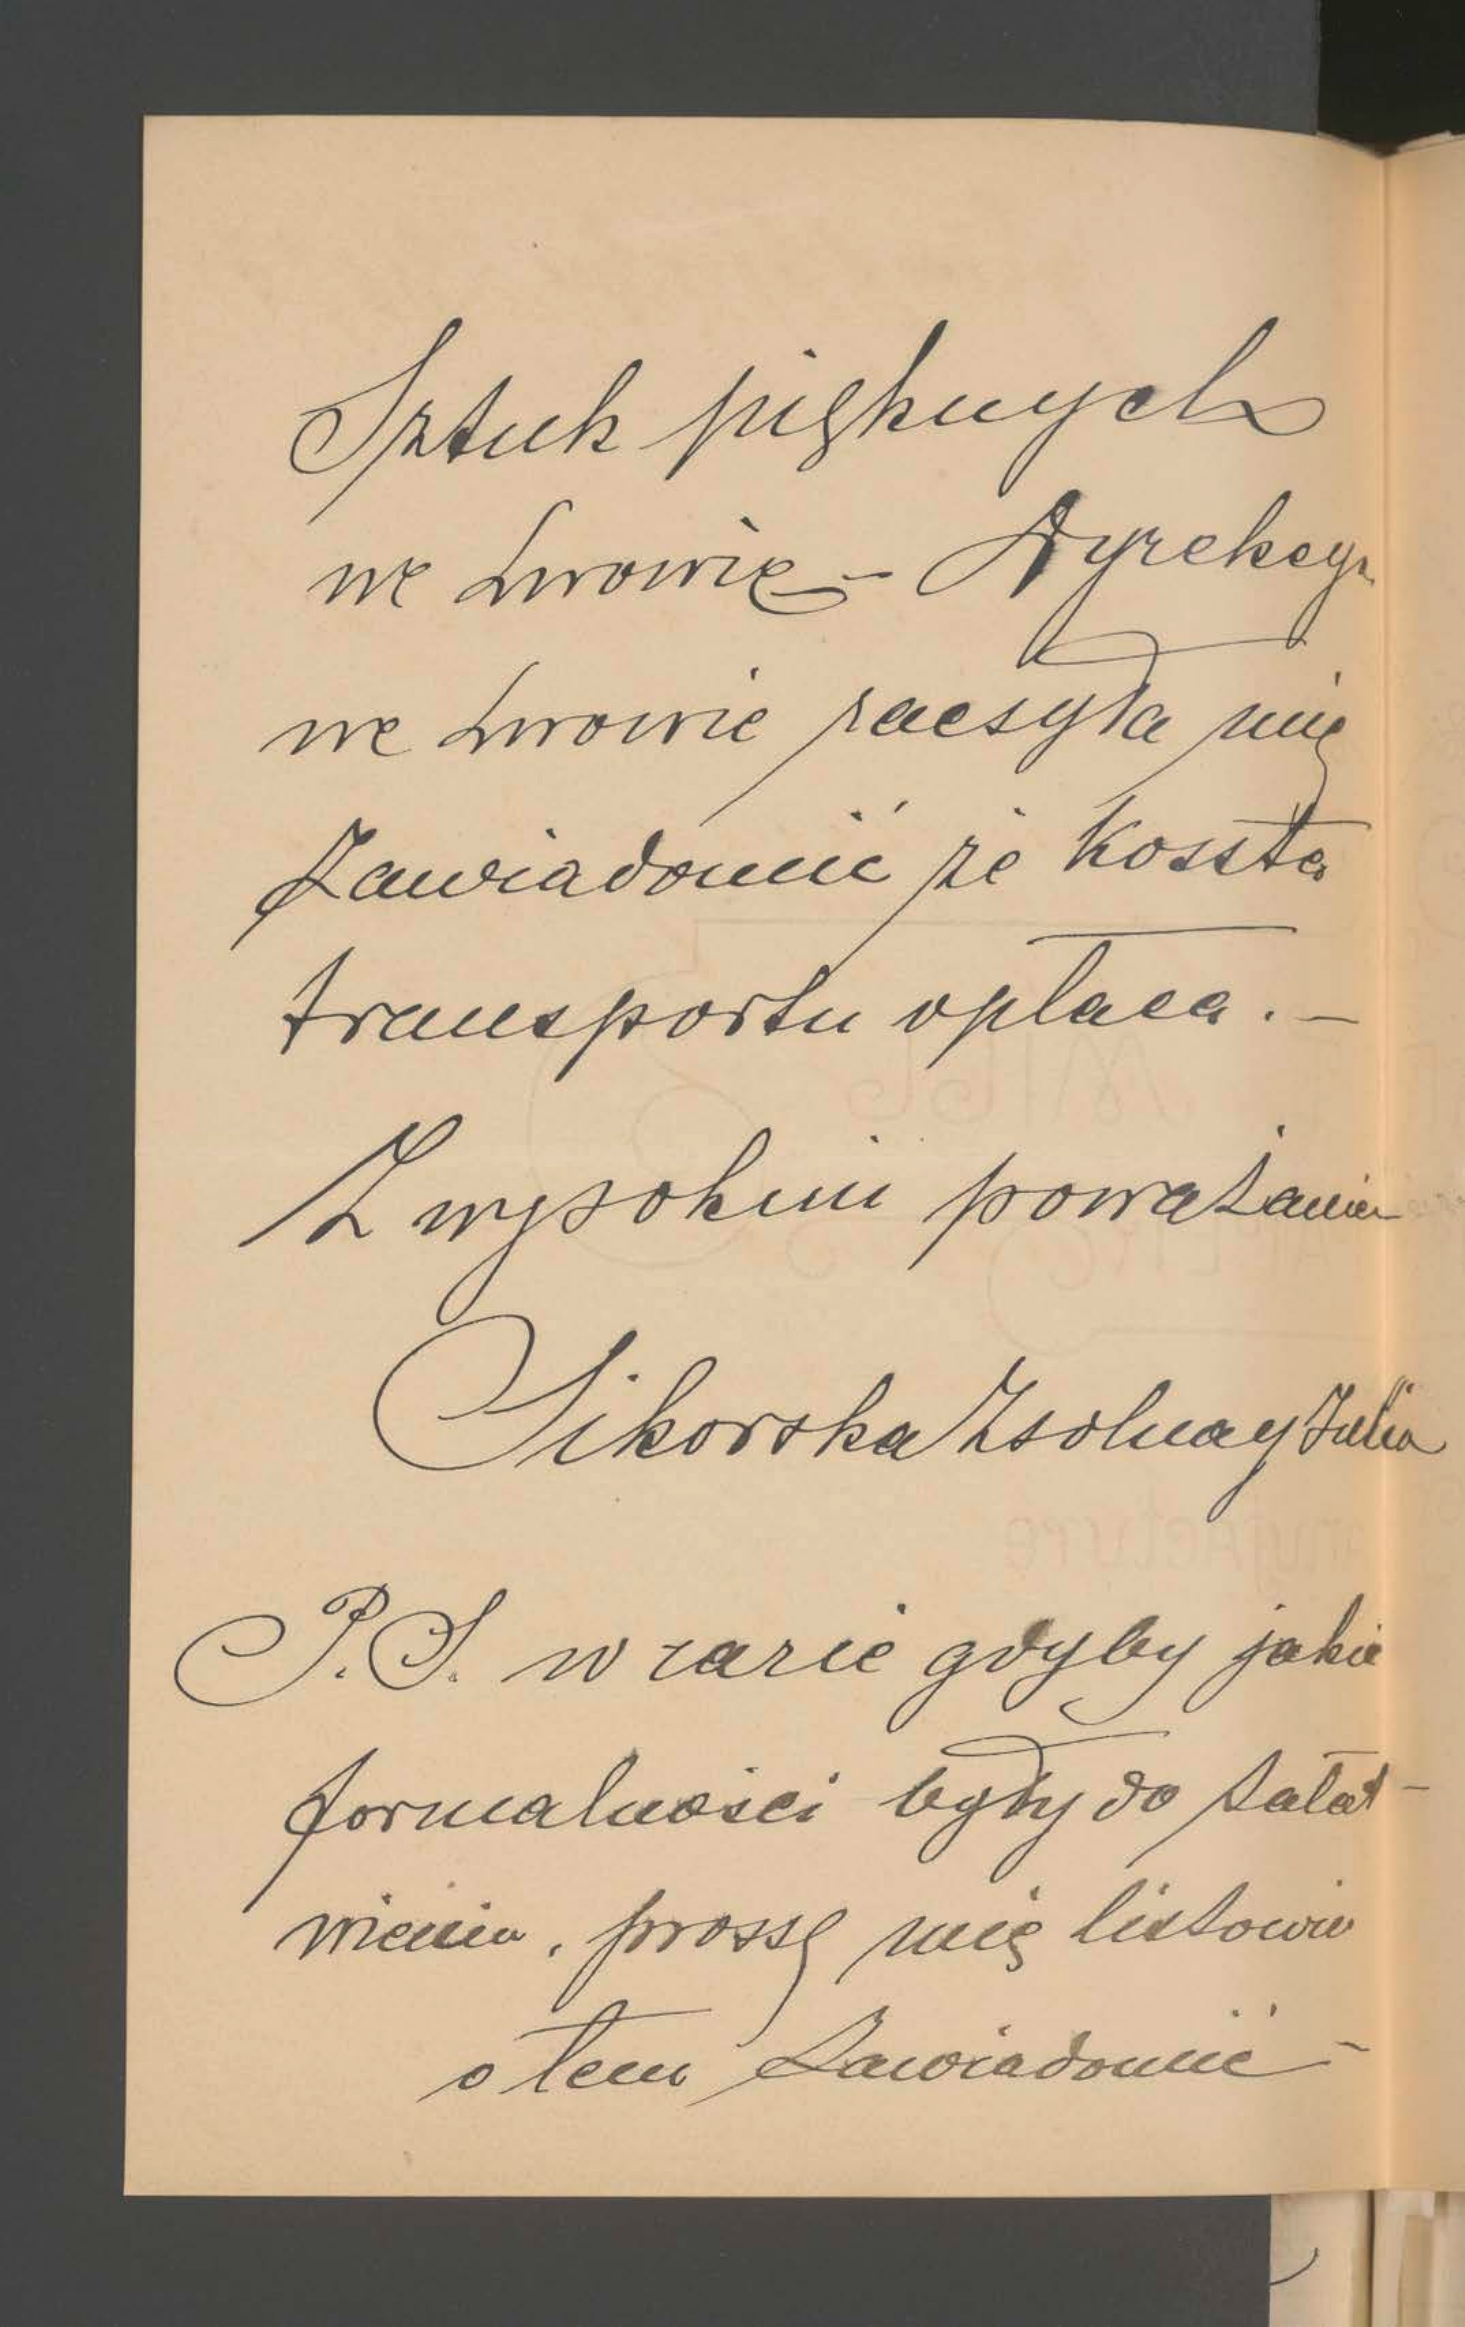 Sztuk pięknych
we Lwowie – Dyrekcya
we Lwowie raczyła mię
zawiadomić że koszta
transportu opłaca. –
Z wysokim poważaniem
Sikorska Zsolnay Julia
P. S. w razie gdyby jakie
formalności były do załat–
wienia, proszę mię listowie
o tem zawiadomić –